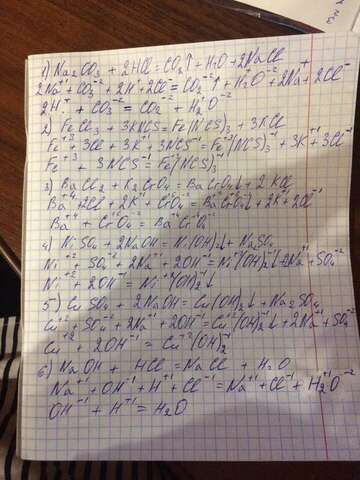 1) Na₂CO₃ + 2HCl = CO₂↑ + H₂O + 2NaCl
2Na⁺ + CO₃⁻² + 2H⁺ + 2Cl⁻ = CO₂⁻²↑ + H₂O⁻² + 2Na⁺ + 2Cl⁻
2H⁺ + CO₃⁻² = CO₂⁻² + H₂O⁻²
2) FeCl₃ + 3KNCS = Fe(NCS)₃ + 3KCl
Fe⁺³ + 3Cl + 3K⁺ + 3NCS⁻¹ = Fe⁺³(NCS)₃⁻¹ + 3K⁺¹ + 3Cl⁻¹
Fe⁺³ + 3NCS⁻¹ = Fe⁺³(NCS)₃⁻¹
3) BaCl₂ + K₂CrO₄ = BaCrO₄↓ + 2KCl
Ba⁺⁴ + 2Cl + 2K⁺ + CrO₄⁻² = BaCrO₄↓ + 2K⁺ + 2Cl⁻¹
Ba⁺⁴ + CrO₄⁻² = Ba⁺⁴CrO₄⁻²
4) NiSO₄ + 2NaOH = Ni(OH)₂↓ + Na₂SO₄
Ni⁺² + SO₄⁻² + 2Na⁺¹ + 2OH⁻¹ = Ni⁺²(OH)₂↓ + 2Na⁺¹ + SO₄⁻²
Ni⁺² + 2OH⁻¹ = Ni⁺²(OH)₂↓
5) CuSO₄ + 2NaOH = Cu(OH)₂↓ + Na₂SO₄
Cu⁺² + SO₄⁻² + 2Na⁺¹ + 2OH⁻¹ = Cu⁺²(OH)₂↓ + 2Na⁺¹ + SO₄⁻²
Cu⁺² + 2OH⁻¹ = Cu⁺²(OH)₂⁻¹
6) NaOH + HCl = NaCl + H₂O
Na⁺¹ + OH⁻¹ + H⁺¹ + Cl⁻¹ = Na⁺¹ + Cl⁻¹ + H₂⁺¹O⁻²
OH⁻¹ + H⁺¹ = H₂O